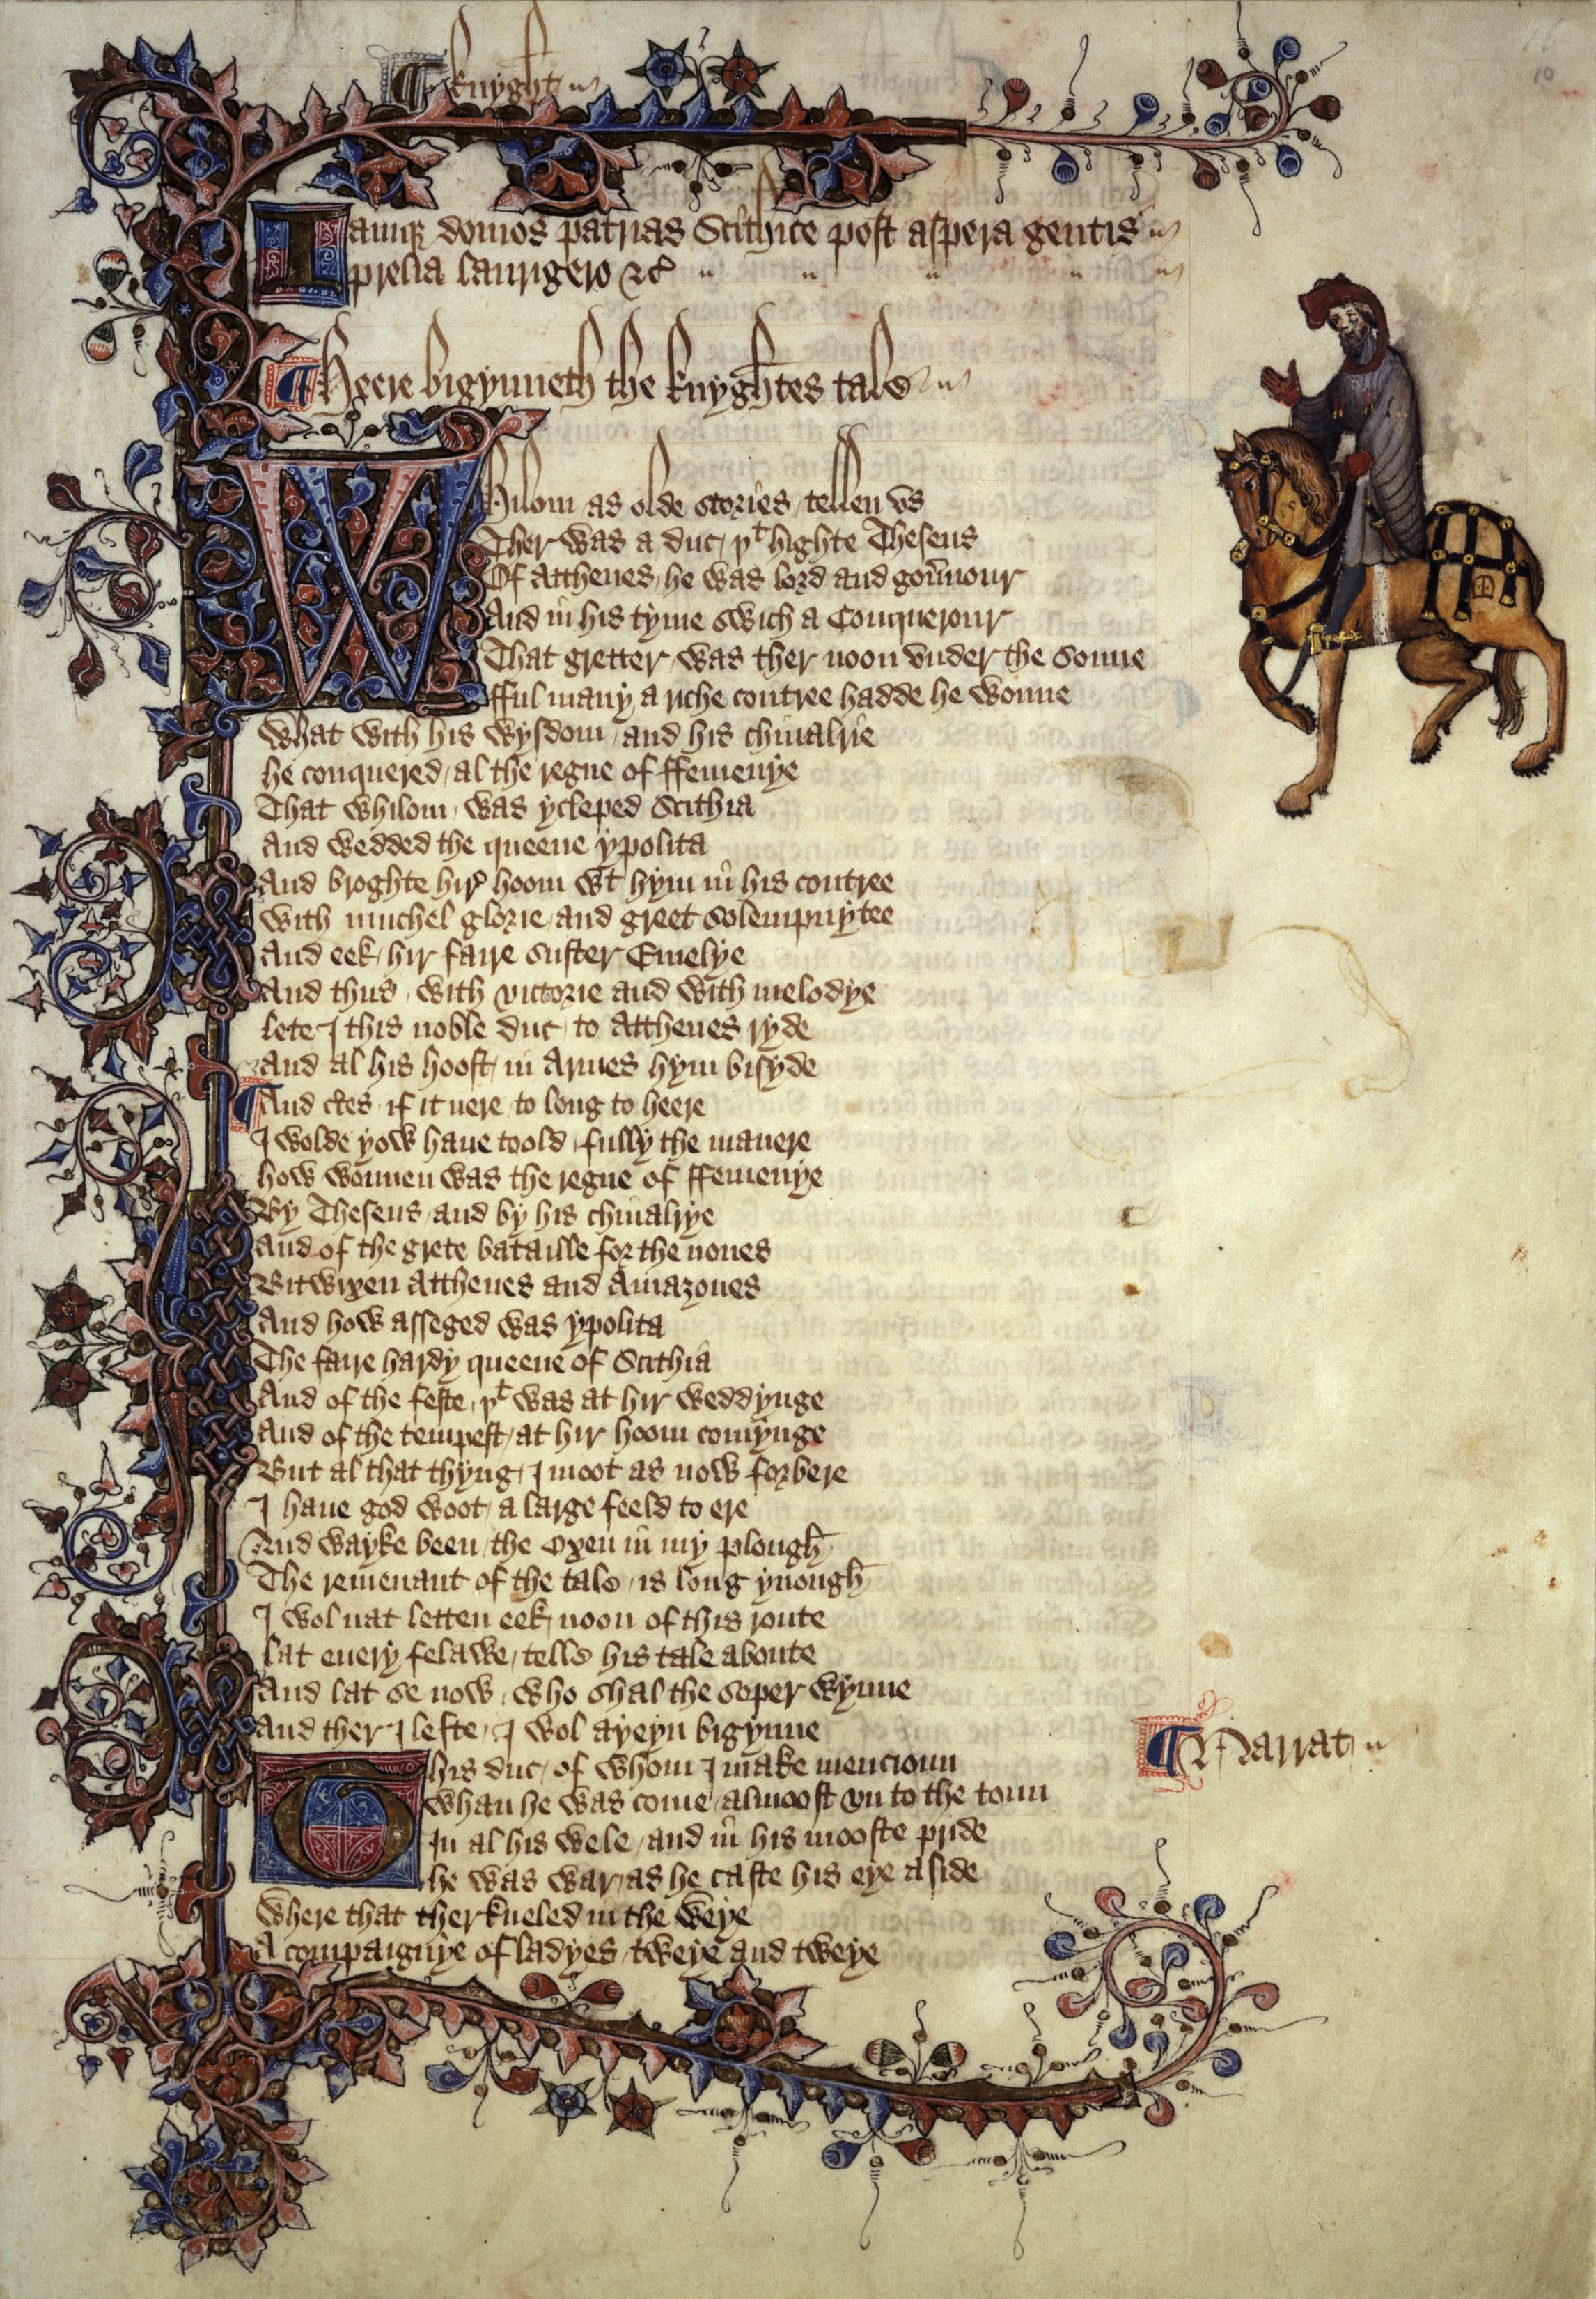 ¶ Knyght
10
Iamq domos patrias Scithice post aspera gentis
prelia laurigero &c
¶ Heere bigynneth the knyghtes tale
Whilom as olde stories / tellen vs
Ther was a duc / þt highte Theseus
Of Atthenes / he was lord and gouernour
And in his tyme swich a Conquerour
That gretter / was ther noon vnder the sonne
fful many a riche contree hadde he wonne
What with his wysdom / and his chiualrie
he conquered / al the regne of ffemenye
That whilom / was ycleped Scithia
And wedded the queene ypolita
And broghte hire hoom wt hym in his contree
With muchel glorie / and greet solempnytee
And eek / hir faire suster Emelye
And thus / with victorie and with melodye
lete I this noble duc / to Atthenes ryde
And al his hoost / in Armes hym bisyde
¶ And certes / if it nere to long to heere
I wolde yow haue toold / fully the manere
how wonnen was the regne of ffemenye
By Theseus / and by his chiualrye
And of the grete bataille for the nones
Bitwixen Atthenes and Amazones
And how asseged was ypolita
The faire hardy queene of Scithia
And of the feste / þt was at hir weddynge
And of the tempest / at hir hoom comynge
But al that thyng / I moot as now forbere
I haue god woot / a large feeld to ere
And wayke been / the Oxen in my plough
The remenant of the tale / is long ynough
I wol nat letten eek / noon of this route
lat euery felawe / telle his tale aboute
And lat se now / who shal the soper wynne
And ther I lefte / I wol ayeyn bigynne
This duc / of whom I make mencioun
¶ Narrat
whan he was come / almoost vn to the toun
In al his wele / and in his mooste pride
he was war / as he caste his eye aside
Where that ther kneled in the weye
A compaignye of ladyes / tweye and tweye